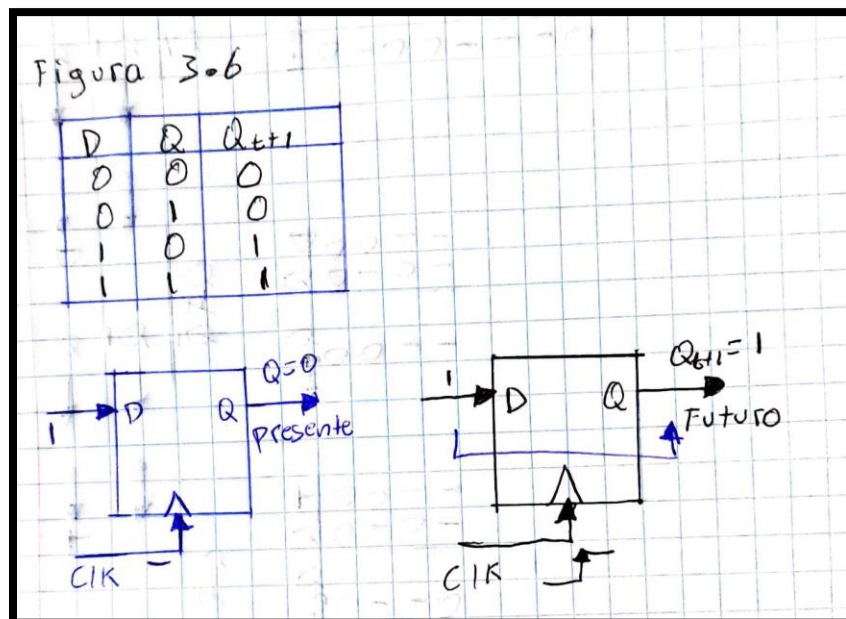 Figura 3.6
D Q Qt+1
0 0 0
0 1 0
1 0 1
1 1 1
Q=0
1 D Q
presente
Clk
Qt+1=1
1 D Q
Futuro
Clk